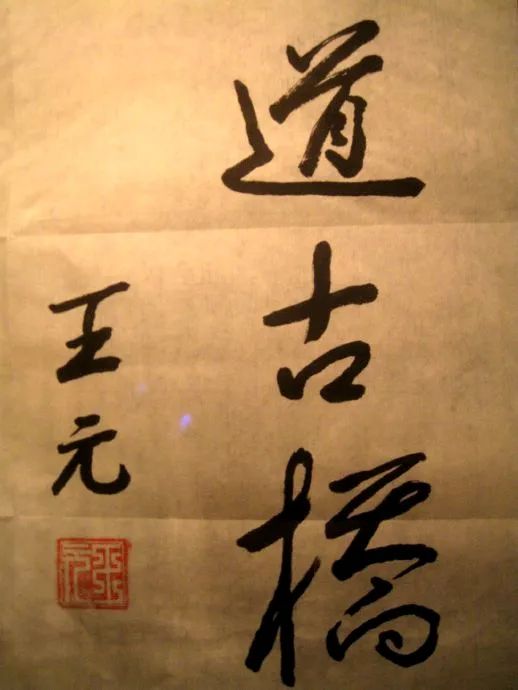 道古橋
王元